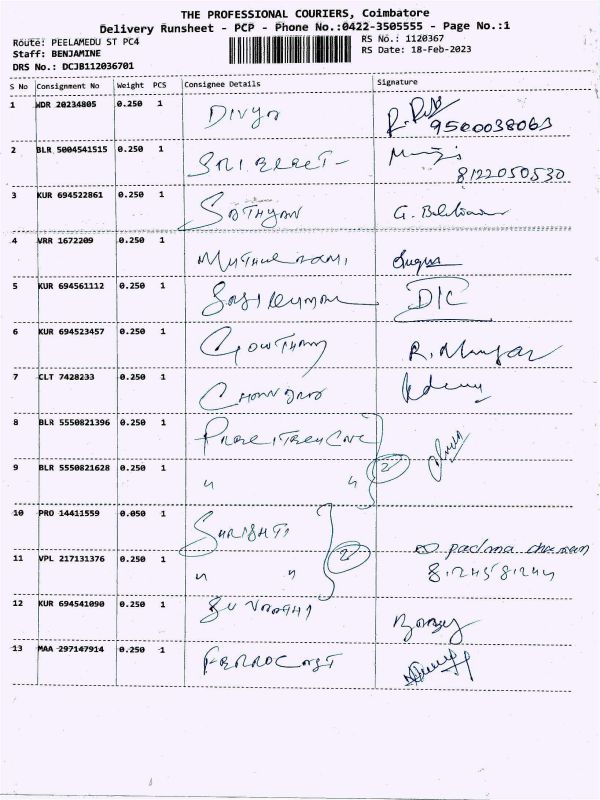 THE PROFESSIONAL COURIERS, Coimbatore
Delivery Runsheet - PCP - Phone No.:0422-3505555 - Page No.:1
Route: PEELAMEDU ST PC4
RS No.: 1120367
Staff: BENJAMINE
RS Date: 18-Feb-2023
DRS No.: DCJB112036701
S No Consignment No Weight PCS Consignee Details Signature
1 WDR 20234805 0.250 1 Divya
9500038063
2 BLR 5004541515 0.250 1
8122050530
3 KUR 694522861 0.250 1 SATHYAN G.
4 VRR 1672209 0.250 1
5 KUR 694561112 0.250 1 SASIKUMAR D/C
6 KUR 694523457 0.250 1 GOWTHAM R.
7 CLT 7428233 0.250 1
8 BLR 5550821396 0.250 1
2
9 BLR 5550821628 0.250 1 " "
10 PRO 14411559 0.050 1
padma
2
11 VPL 217131376 0.250 1 " "
12 KUR 694541090 0.250 1
13 MAA 297147914 0.250 1